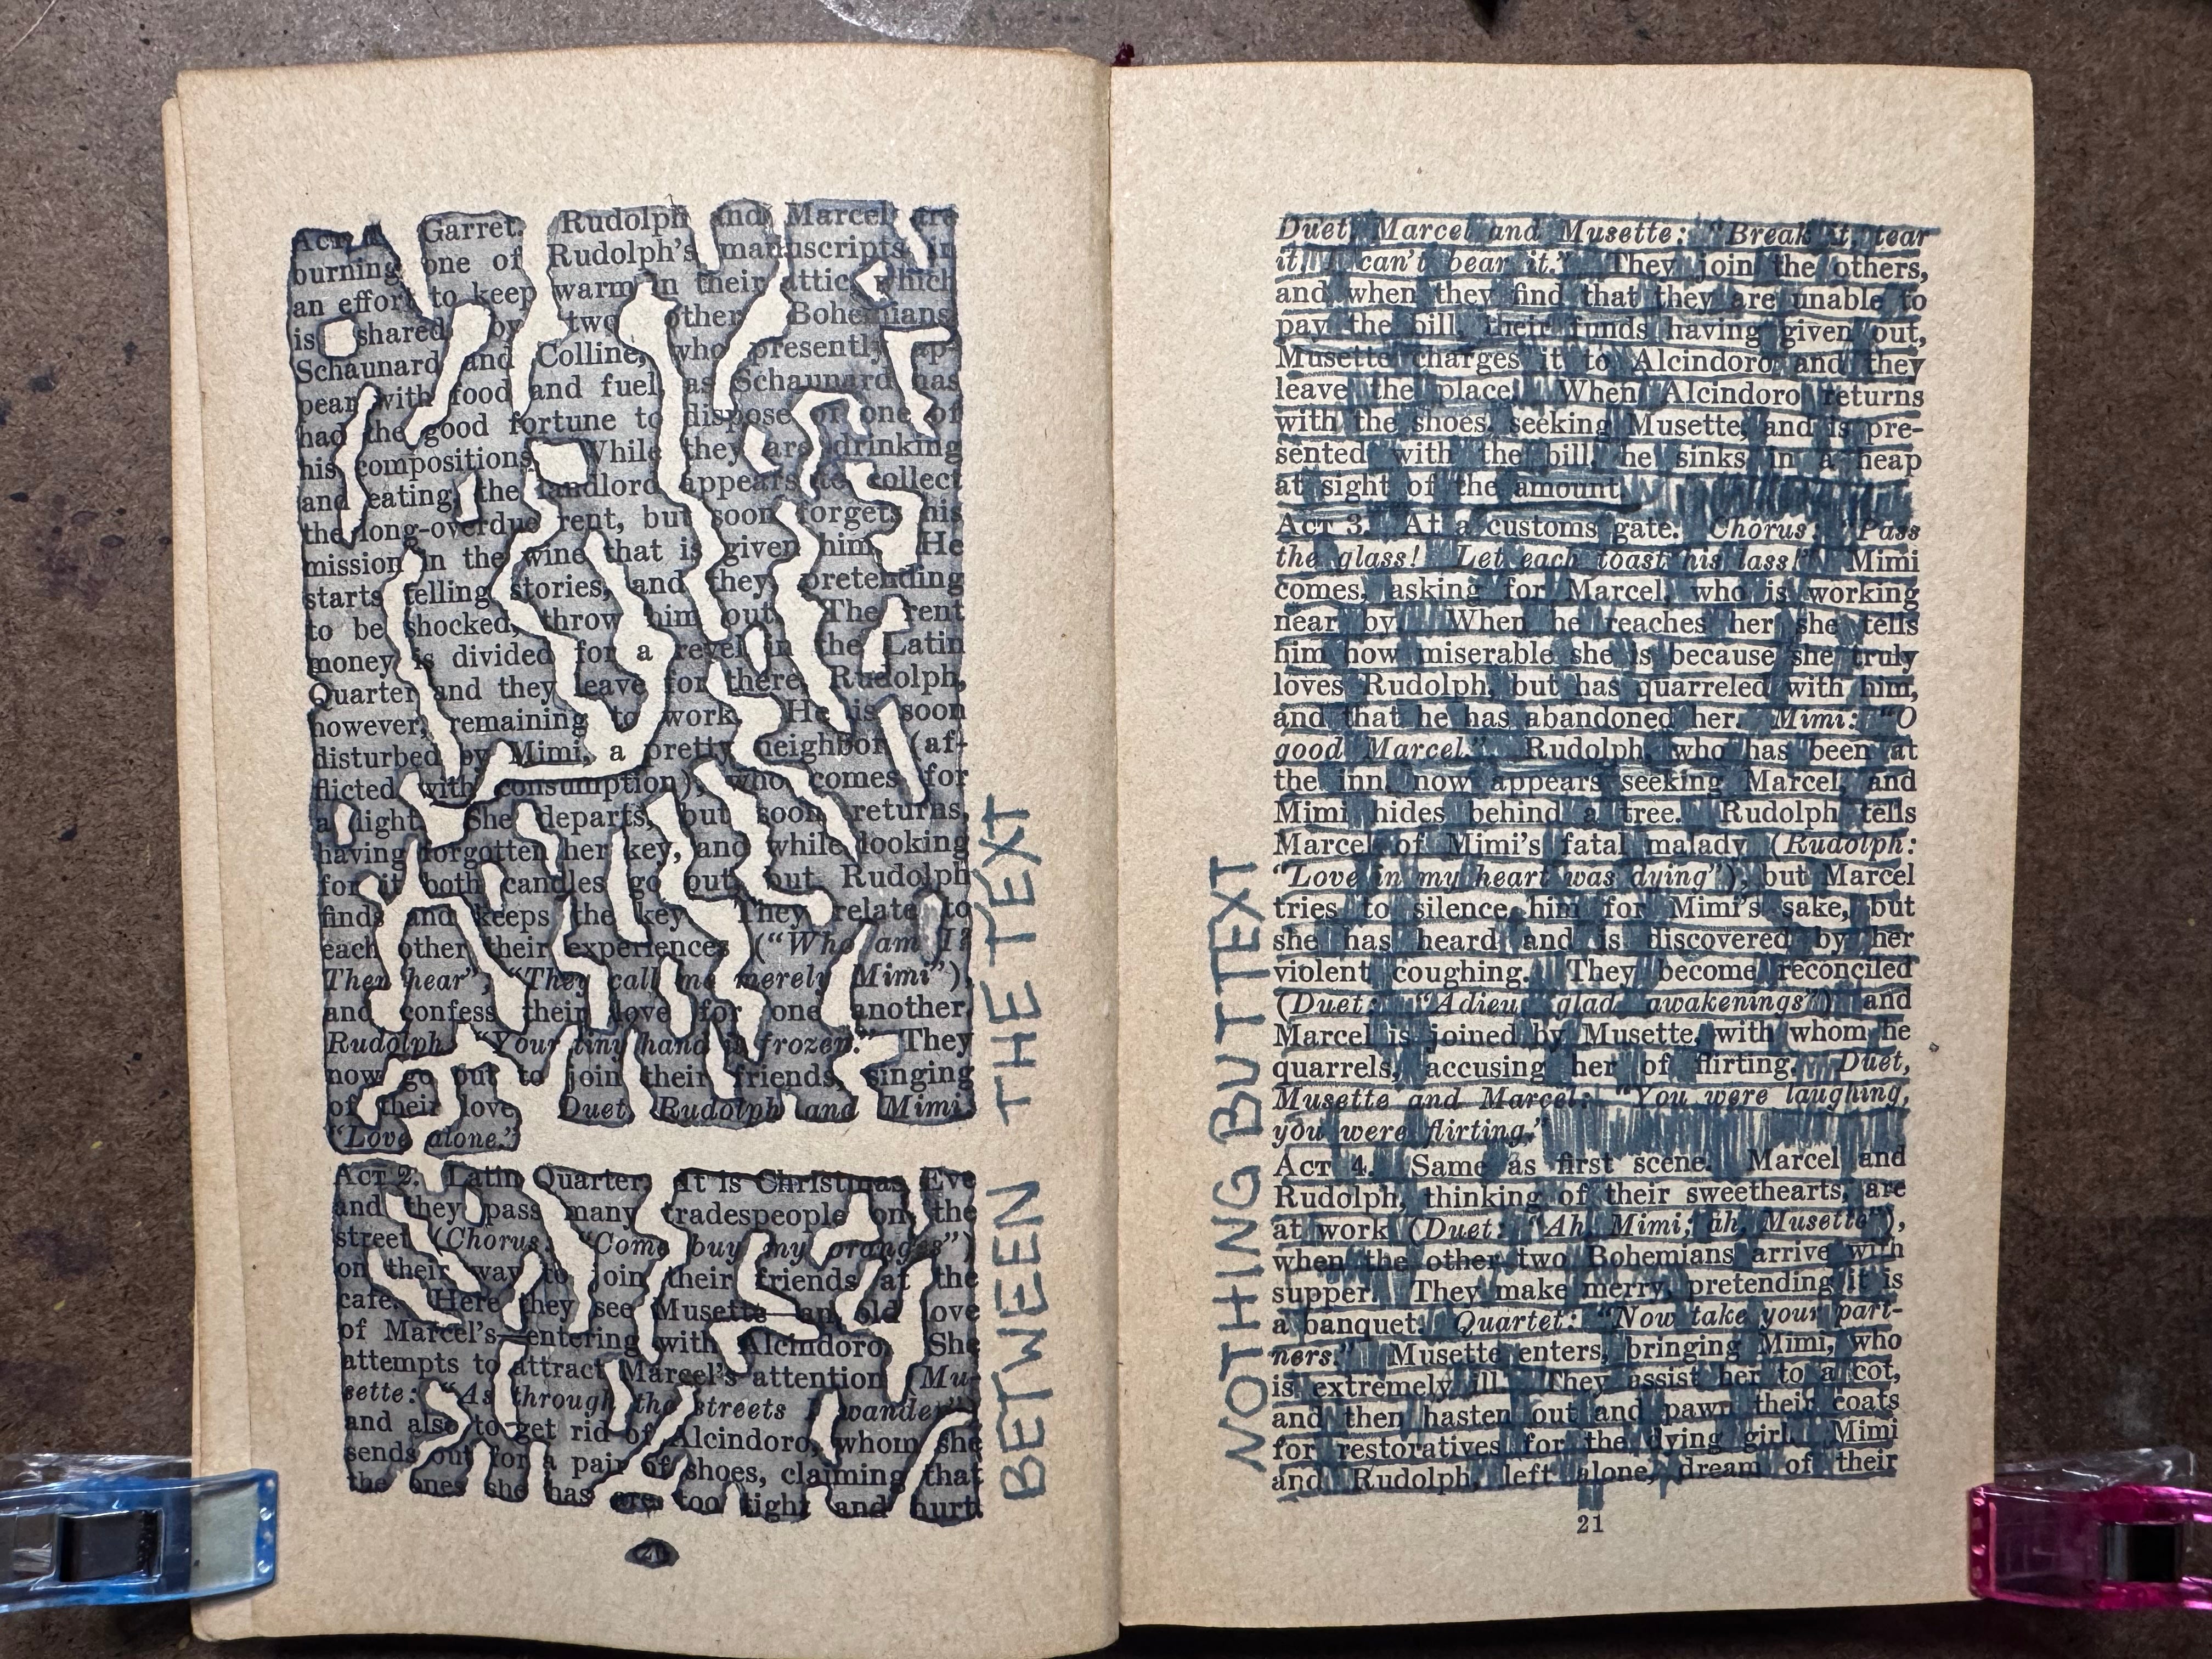 Act 1. Garret. Rudolph and Marcel are
burning one of Rudolph's manuscripts in
an effort to keep warm in their attic which
is shared by two other Bohemians,
Schaunard and Colline, who presently ap-
pear with food and fuel as Schaunard has
had the good fortune to dispose of one of
his compositions. While they are drinking
and eating, the landlord appears to collect
the long-overdue rent, but soon forgets his
mission in the wine that is given him. He
starts telling stories, and they, pretending
to be shocked, throw him out. The rent
money is divided for a revel in the Latin
Quarter and they leave for there, Rudolph,
however, remaining to work. He is soon
disturbed by Mimi, a pretty neighbor (af-
flicted with consumption), who comes for
a light. She departs, but soon returns,
having forgotten her key, and while looking
for it both candles go out, but Rudolph
finds and keeps the key. They relate to
each other their experiences ("Who am I?
Then hear"; "They call me merely Mimi"),
and confess their love for one another.
Rudolph: "Your tiny hand is frozen." They
now go out to join their friends, singing
of their love. Duet, Rudolph and Mimi:
"Love alone."
Act 2. Latin Quarter. It is Christmas Eve
and they pass many tradespeople on the
street (Chorus: "Come buy my oranges")
on their way to join their friends at the
cafe. Here they see Musette—an old love
of Marcel's—entering with Alcindoro. She
attempts to attract Marcel's attention (Mu-
sette: "As through the streets I wander")
and also to get rid of Alcindoro, whom she
sends out for a pair of shoes, claiming that
the ones she has are too tight and hurt.
20
BETWEEN THE TEXT
NOTHING BUT TEXT
Duet, Marcel and Musette: "Break it, tear
it, I can't bear it." They join the others,
and when they find that they are unable to
pay the bill, their funds having given out,
Musette charges it to Alcindoro and they
leave the place. When Alcindoro returns
with the shoes, seeking Musette, and is pre-
sented with the bill, he sinks in a heap
at sight of the amount.
Act 3. At a customs gate. Chorus: "Pass
the glass! Let each toast his lass!" Mimi
comes, asking for Marcel, who is working
near by. When he reaches her she tells
him how miserable she is because she truly
loves Rudolph, but has quarreled with him,
and that he has abandoned her. Mimi: "O
good Marcel." Rudolph, who has been at
the inn, now appears seeking Marcel, and
Mimi hides behind a tree. Rudolph tells
Marcel of Mimi's fatal malady (Rudolph:
"Love in my heart was dying"), but Marcel
tries to silence him for Mimi's sake, but
she has heard and is discovered by her
violent coughing. They become reconciled
(Duet: "Adieu, glad awakenings") and
Marcel is joined by Musette, with whom he
quarrels, accusing her of flirting. Duet,
Musette and Marcel: "You were laughing,
you were flirting."
Act 4. Same as first scene. Marcel and
Rudolph, thinking of their sweethearts, are
at work (Duet: "Ah, Mimi; ah, Musette"),
when the other two Bohemians arrive with
supper. They make merry, pretending it is
a banquet. Quartet: "Now take your part-
ners." Musette enters, bringing Mimi, who
is extremely ill. They assist her to a cot,
and then hasten out and pawn their coats
for restoratives for the dying girl. Mimi
and Rudolph, left alone, dream of their
21